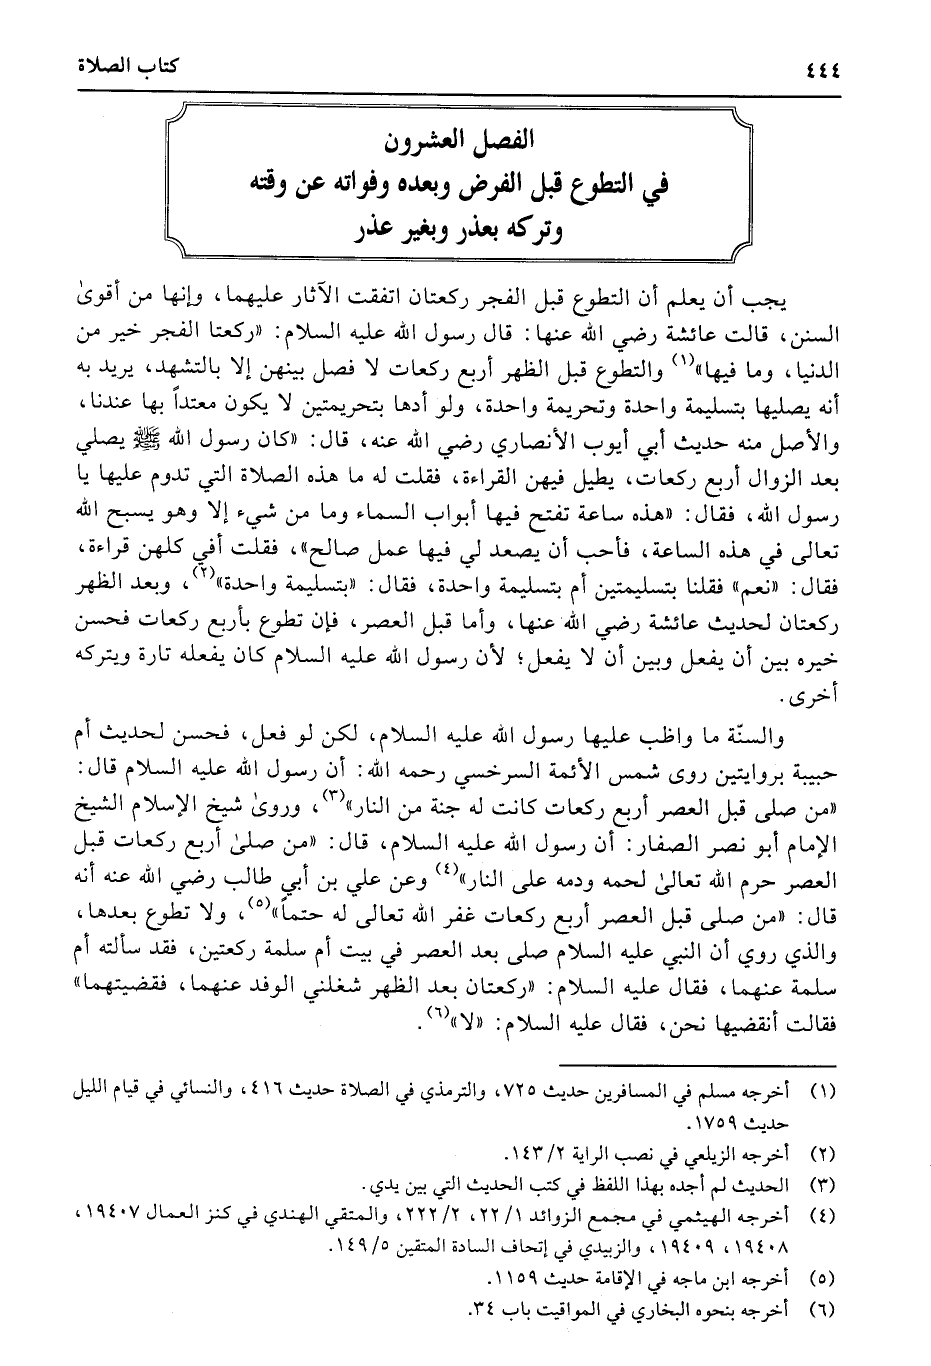 ٤٤٤ كتاب الصلاة
الفصل العشرون
في التطوع قبل الفرض وبعده وفواته عن وقته
وتركه بعذر وبغير عذر
يجب أن يعلم أن التطوع قبل الفجر ركعتان اتفقت الآثار عليهما، وإنها من أقوىٰ
السنن، قالت عائشة رضي الله عنها: قال رسول الله عليه السلام: «ركعتا الفجر خير من
الدنيا، وما فيها»(١) والتطوع قبل الظهر أربع ركعات لا فصل بينهن إلا بالتشهد، يريد به
أنه يصليها بتسليمة واحدة وتحريمة واحدة، ولو أدها بتحريمتين لا يكون معتداً بها عندنا،
والأصل منه حديث أبي أيوب الأنصاري رضي الله عنه، قال: «كان رسول الله ﷺ يصلي
بعد الزوال أربع ركعات، يطيل فيهن القراءة، فقلت له ما هذه الصلاة التي تدوم عليها يا
رسول الله، فقال: «هذه ساعة تفتح فيها أبواب السماء وما من شيء إلا وهو يسبح الله
تعالى في هذه الساعة، فأحب أن يصعد لي فيها عمل صالح»، فقلت أفي كلهن قراءة،
فقال: «نعم» فقلنا بتسليمتين أم بتسليمة واحدة، فقال: «بتسليمة واحدة»(٢)، وبعد الظهر
ركعتان لحديث عائشة رضي الله عنها، وأما قبل العصر، فإن تطوع بأربع ركعات فحسن
خيره بين أن يفعل وبين أن لا يفعل؛ لأن رسول الله عليه السلام كان يفعله تارة ويتركه
أخرى.
والسنّة ما واظب عليها رسول الله عليه السلام، لكن لو فعل، فحسن لحديث أم
حبيبة بروايتين روى شمس الأئمة السرخسي رحمه الله: أن رسول الله عليه السلام قال:
«من صلى قبل العصر أربع ركعات كانت له جنة من النار»(٣)، وروىٰ شيخ الإسلام الشيخ
الإمام أبو نصر الصفار: أن رسول الله عليه السلام، قال: «من صلىٰ أربع ركعات قبل
العصر حرم الله تعالىٰ لحمه ودمه على النار»(٤) وعن علي بن أبي طالب رضي الله عنه أنه
قال: «من صلى قبل العصر أربع ركعات غفر الله تعالى له حتماً»(٥)، ولا تطوع بعدها،
والذي روي أن النبي عليه السلام صلى بعد العصر في بيت أم سلمة ركعتين، فقد سألته أم
سلمة عنهما، فقال عليه السلام: «ركعتان بعد الظهر شغلني الوفد عنهما، فقضيتهما»
فقالت أنقضيها نحن، فقال عليه السلام: «لا»(٦).
(١) أخرجه مسلم في المسافرين حديث ٧٢٥، والترمذي في الصلاة حديث ٤١٦، والنسائي في قيام الليل
حديث ١٧٥٩.
(٢) أخرجه الزيلعي في نصب الراية ١٤٣/٢.
(٣) الحديث لم أجده بهذا اللفظ في كتب الحديث التي بين يدي.
(٤) أخرجه الهيثمي في مجمع الزوائد ٢٢/١، ٢٢٢/٢، والمتقي الهندي في كنز العمال ١٩٤٠٧،
١٩٤٠٨، ١٩٤٠٩، والزبيدي في إتحاف السادة المتقين ١٤٩/٥.
(٥) أخرجه ابن ماجه في الإقامة حديث ١١٥٩.
(٦) أخرجه بنحوه البخاري في المواقيت باب ٣٤.